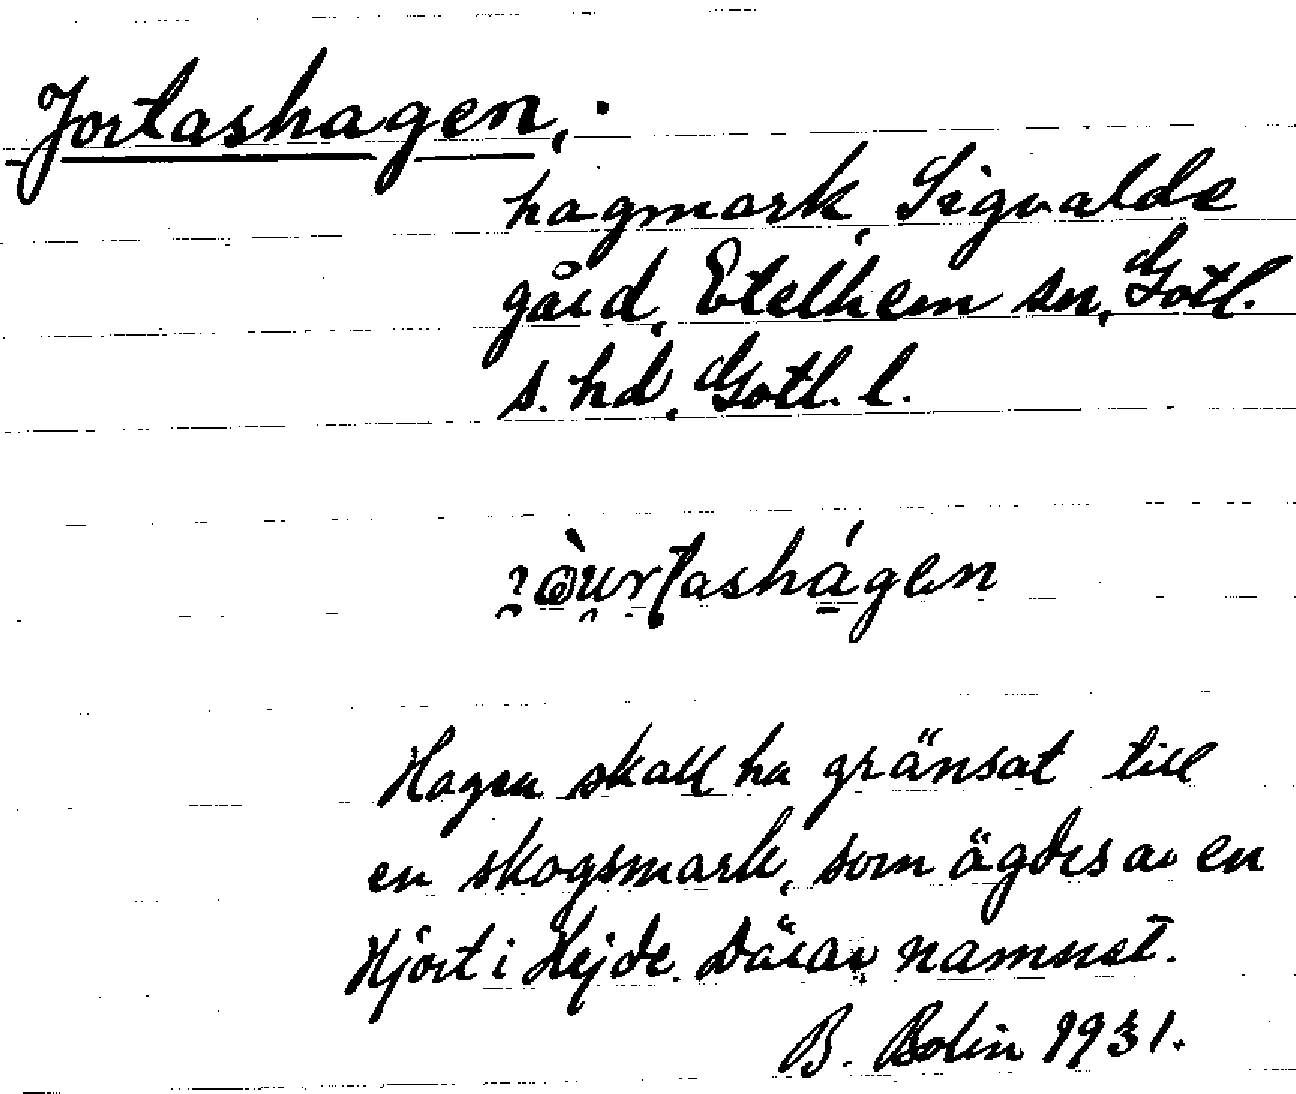 Jortashagen,
hagmark, Sigvalde
gård, Etelhem sn, Gotl.
s. hd, Gotl. l.
Hagen skall ha gränsat till
en skogsmark, som ägdes av en
Hjort i Hejde. Därav namnet.
B. Bolin 1931.